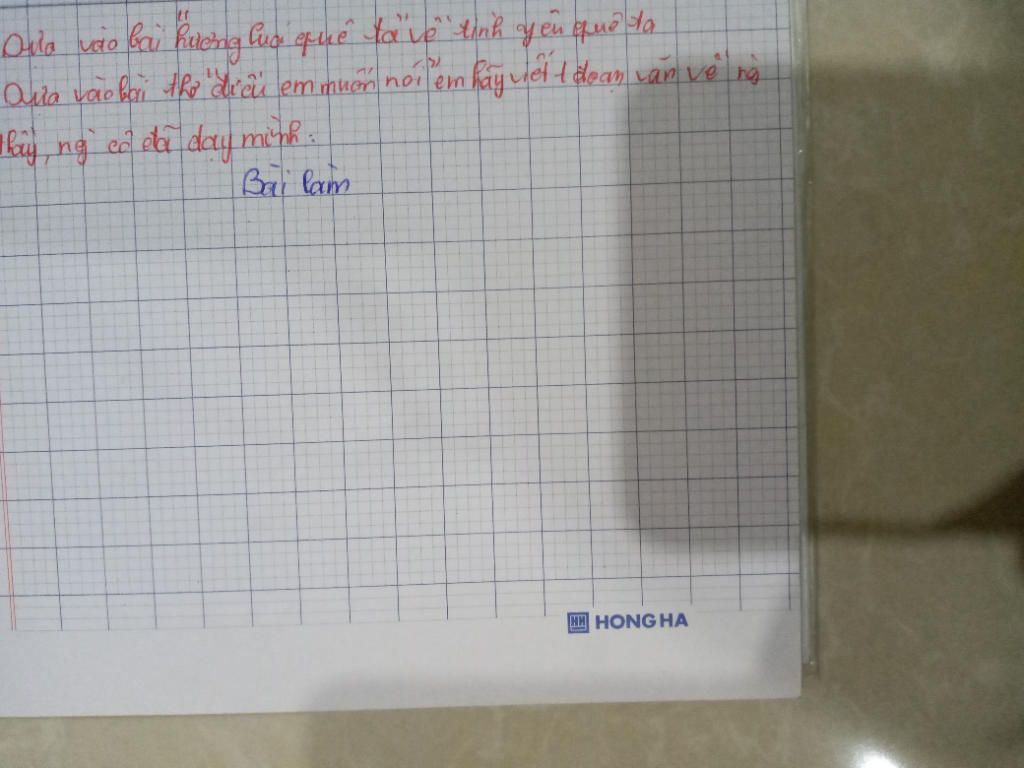 Dựa vào bài "hương lúa quê ta" về tình yêu quê ta
Dựa vào bài thơ "điều em muốn nói" em hãy viết 1 đoạn văn về ng
thầy, ng cô đã dạy mình:
Bài làm
HH HONG HA